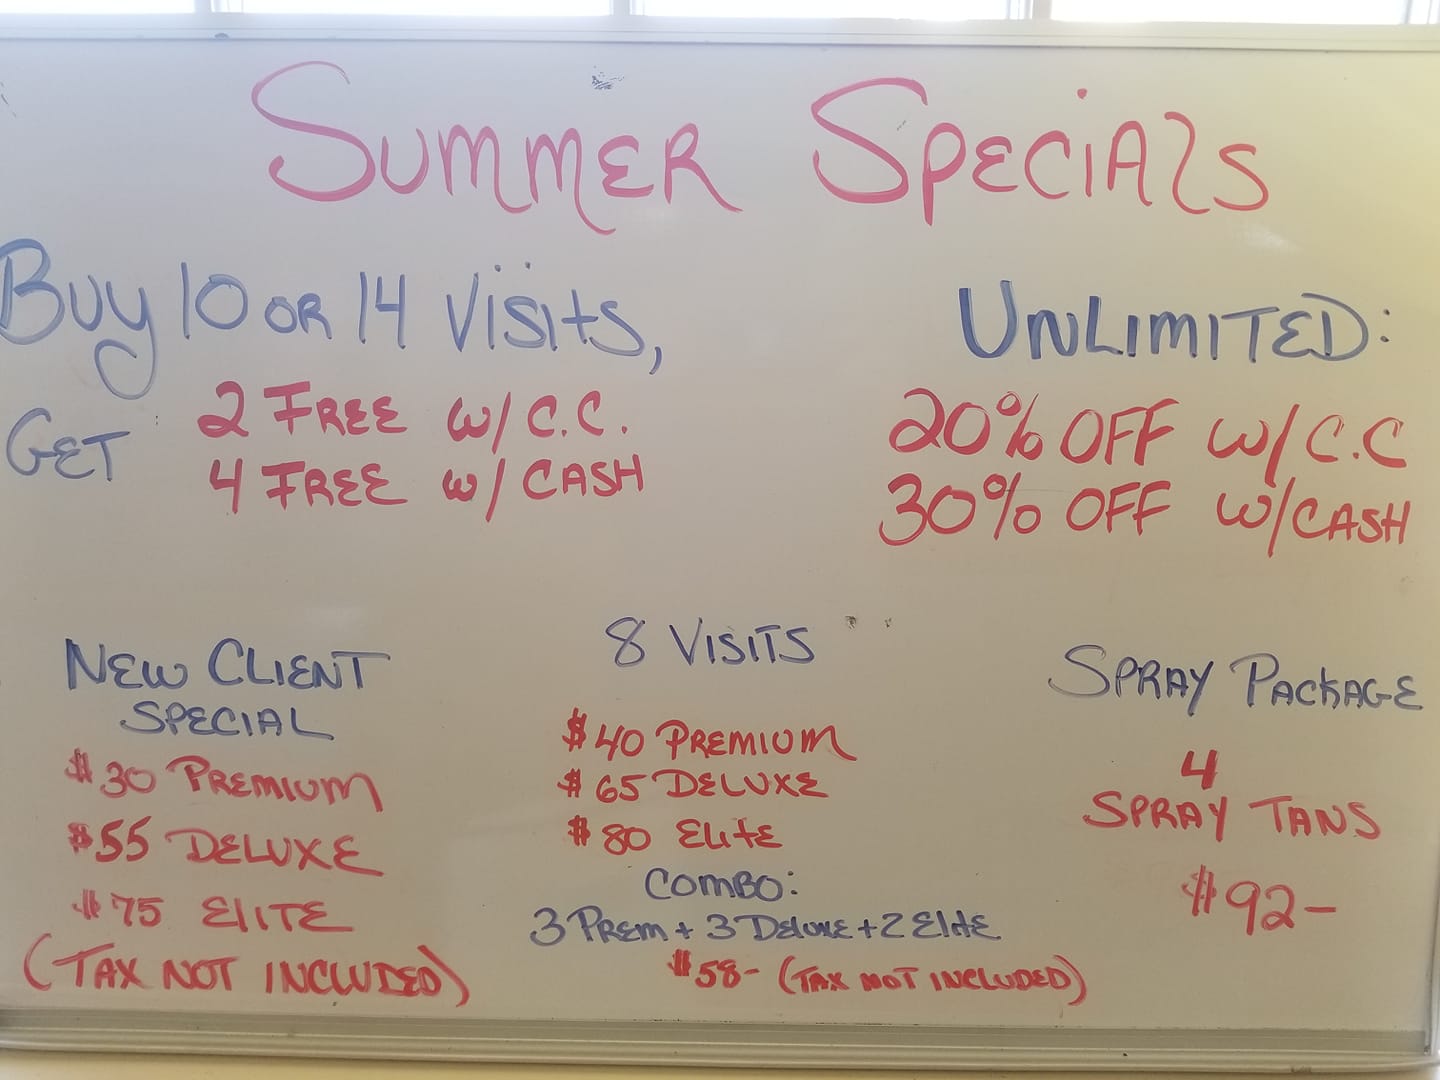 Summer Specials
Buy 10 or 14 Visits,
Get 2 Free w/ C.C.
4 Free w/ Cash
Unlimited:
20% OFF w/ C.C
30% OFF w/ Cash
New Client
Special
$30 Premium
$55 Deluxe
$75 Elite
(Tax not included)
8 Visits
$40 Premium
$65 Deluxe
$80 Elite
Combo:
3 Prem + 3 Deluxe + 2 Elite
$58- (Tax not included)
Spray Package
4
Spray Tans
$92-